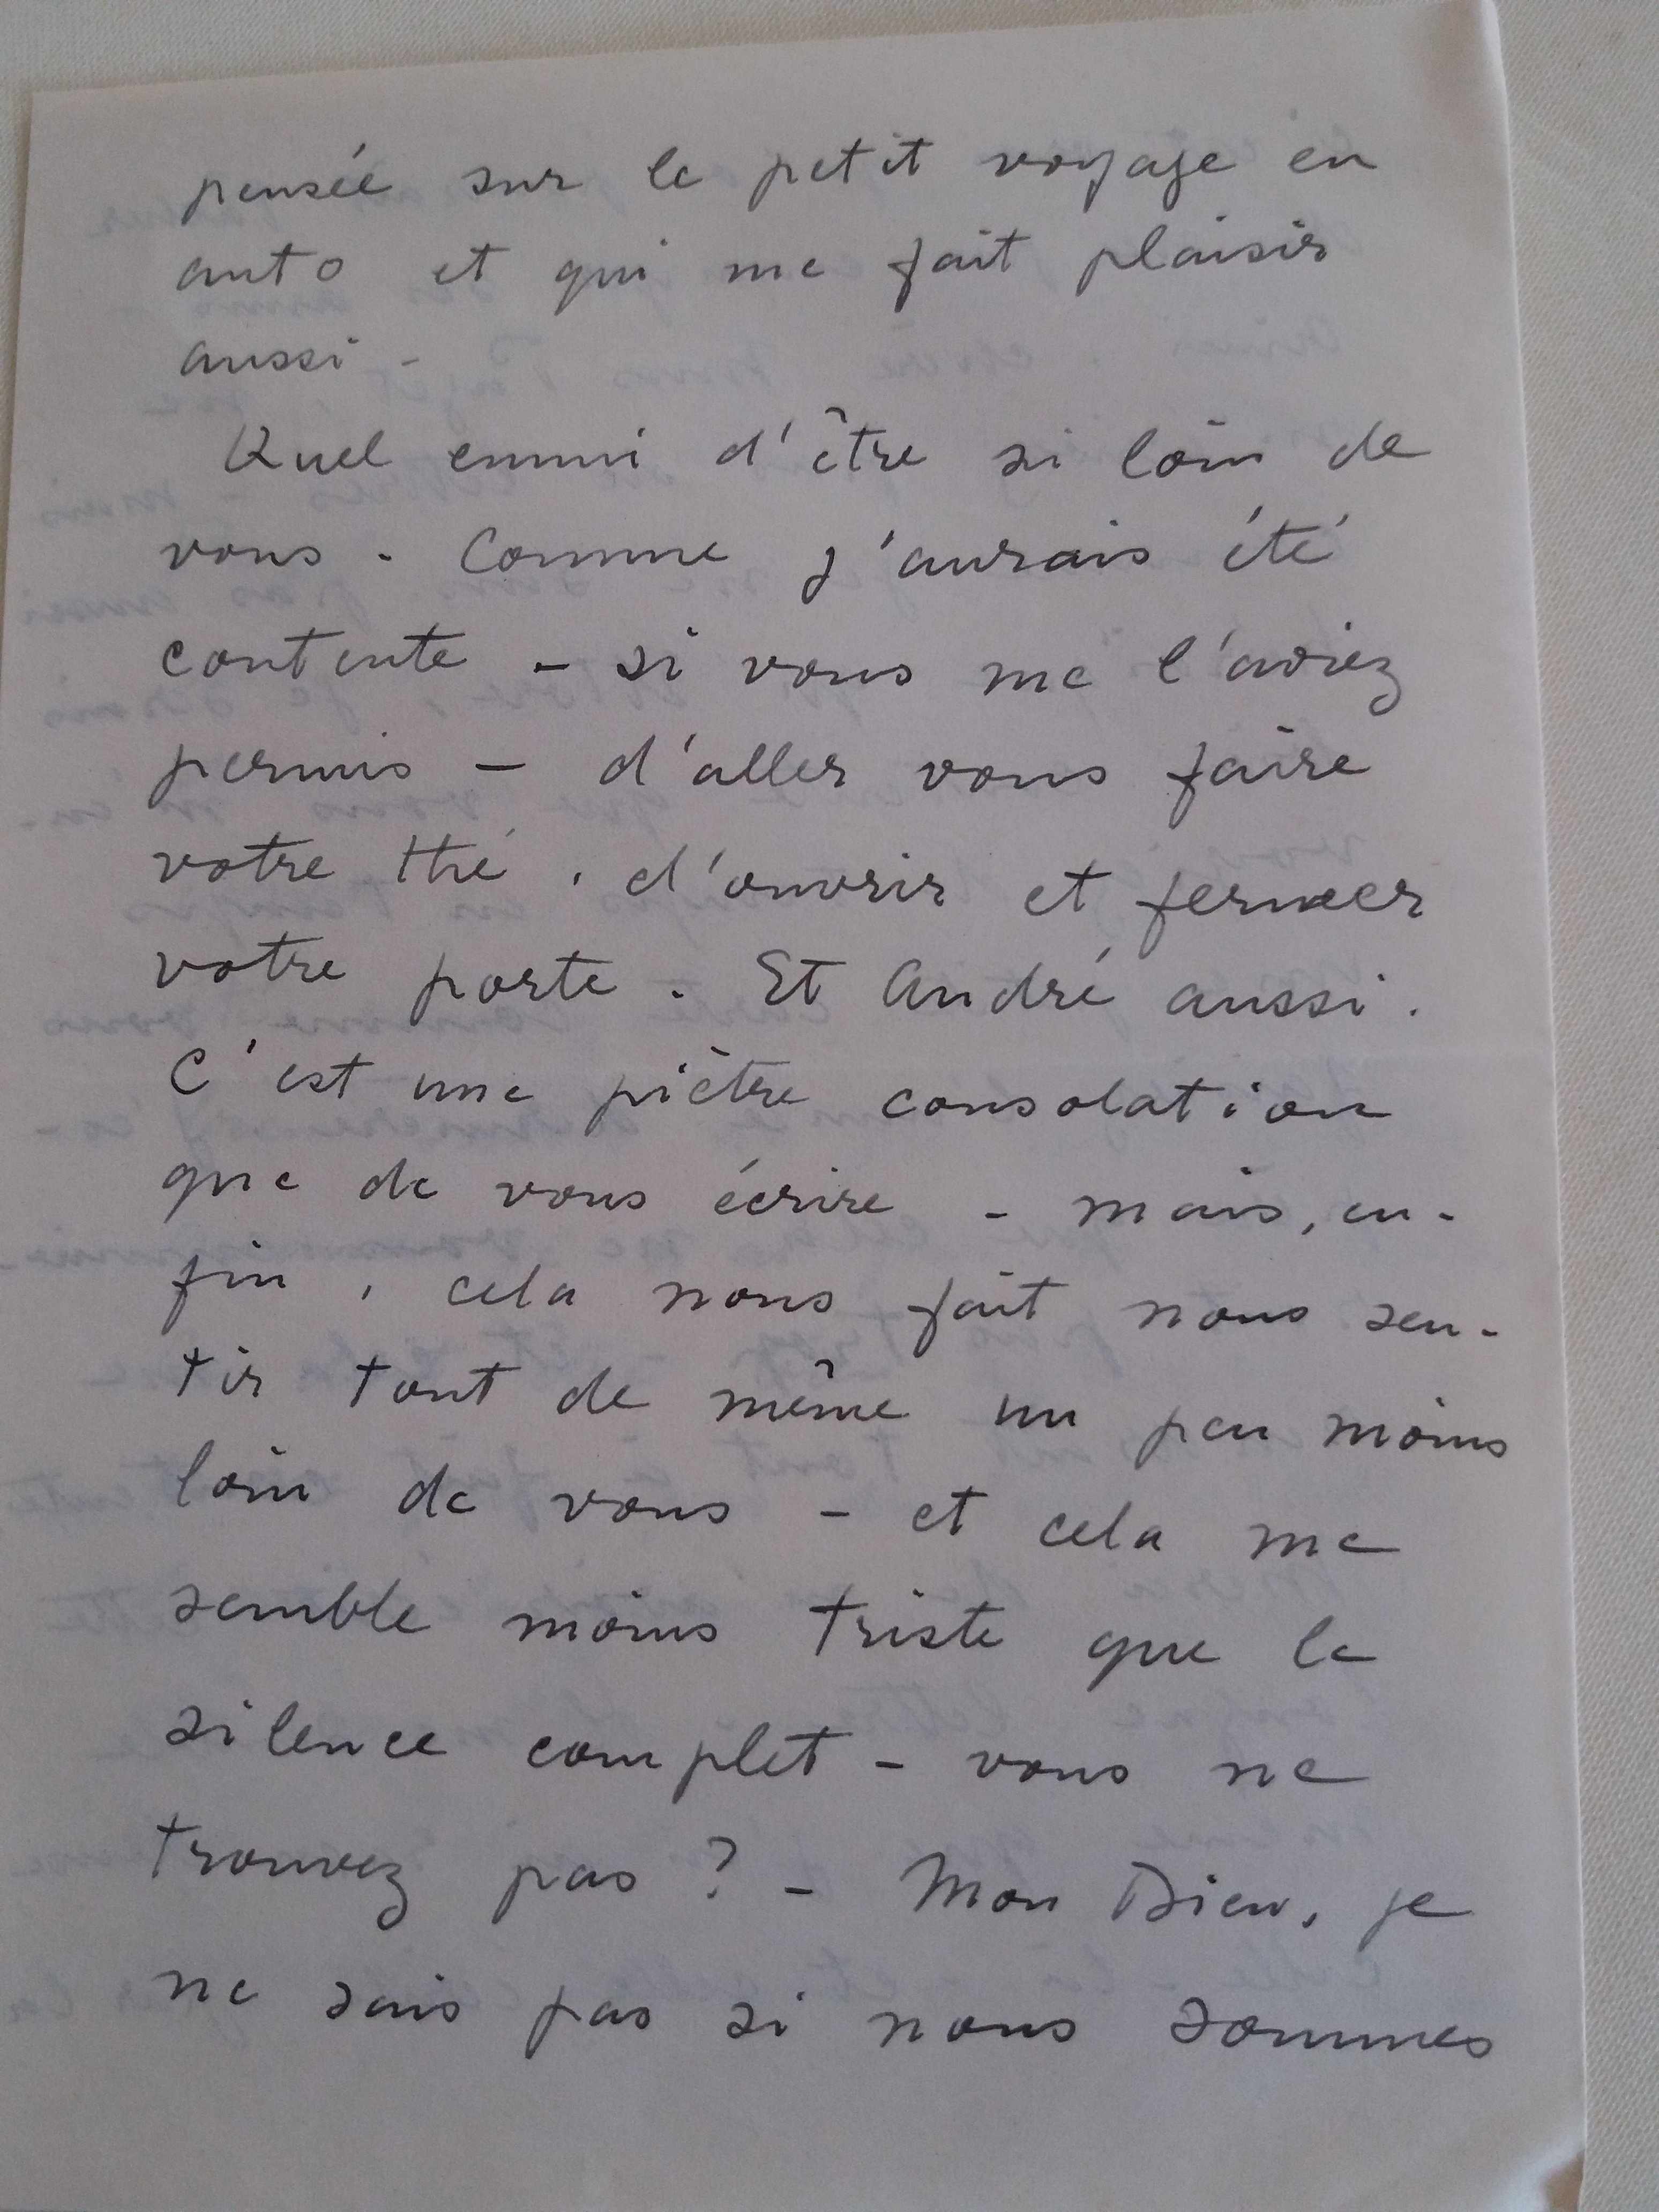 pensée sur le petit voyage en
auto et qui me fait plaisir
aussi -
Quel ennui d'être si loin de
vous. Comme j'aurais été
contente - si vous me l'aviez
permis - d'aller vous faire
votre thé, d'ouvrir et fermer
votre porte. Et André aussi.
C'est une piètre consolation
que de vous écrire - mais, en-
fin, cela nous fait nous sen-
tir tout de même un peu moins
loin de vous - et cela me
semble moins triste que le
silence complet - vous ne
trouvez pas ? - Mon Dieu, je
ne sais pas si nous sommes